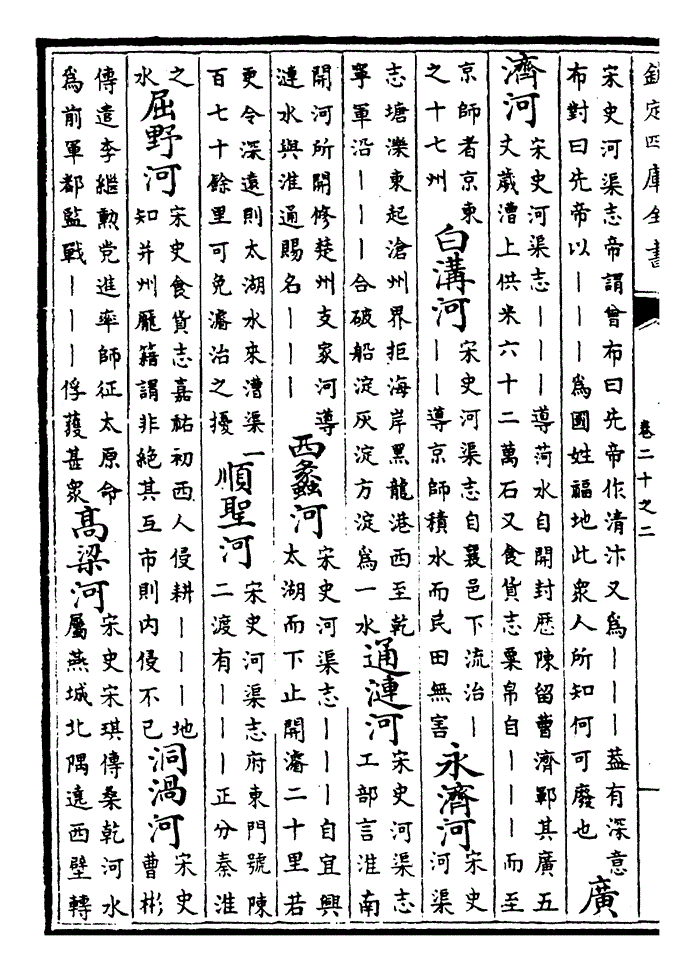 欽定四庫全書
卷二十之二
宋史河渠志帝謂曾布曰先帝作清汴又為〡〡〡葢有深意
布對曰先帝以〡〡〡為國姓福地此衆人所知何可廢也
廣
濟河
宋史河渠志〡〡〡導菏水自開封歷陳留曹濟鄆其廣五
丈歲漕上供米六十二萬石又食貨志粟帛自〡〡〡而至
京師者京東
之十七州
白溝河
宋史河渠志自襄邑下流治〡
〡〡導京師積水而民田無害
永濟河
宋史
河渠
志塘濼東起滄州界拒海岸黑龍港西至乾
寧軍沿〡〡〡合破船淀灰淀方淀為一水
通漣河
宋史河渠志
工部言淮南
開河所開修楚州支家河導
漣水與淮通賜名〡〡〡
西蠡河
宋史河渠志〡〡〡自宜興
太湖而下止開濬二十里若
更令深遠則太湖水來漕渠一
百七十餘里可免濬治之擾
順聖河
宋史河渠志府東門號陳
二渡有〡〡〡正分秦淮
之
水
屈野河
宋史食貨志嘉祐初西人侵耕〡〡〡地
知并州龐籍謂非絕其互市則內侵不已
洞渦河
宋史
曹彬
傳遣李繼勲党進率師征太原命
為前軍都監戰〡〡〡俘䕶甚衆
高梁河
宋史宋琪傳桑乾河水
屬燕城北隅遶西壁轉